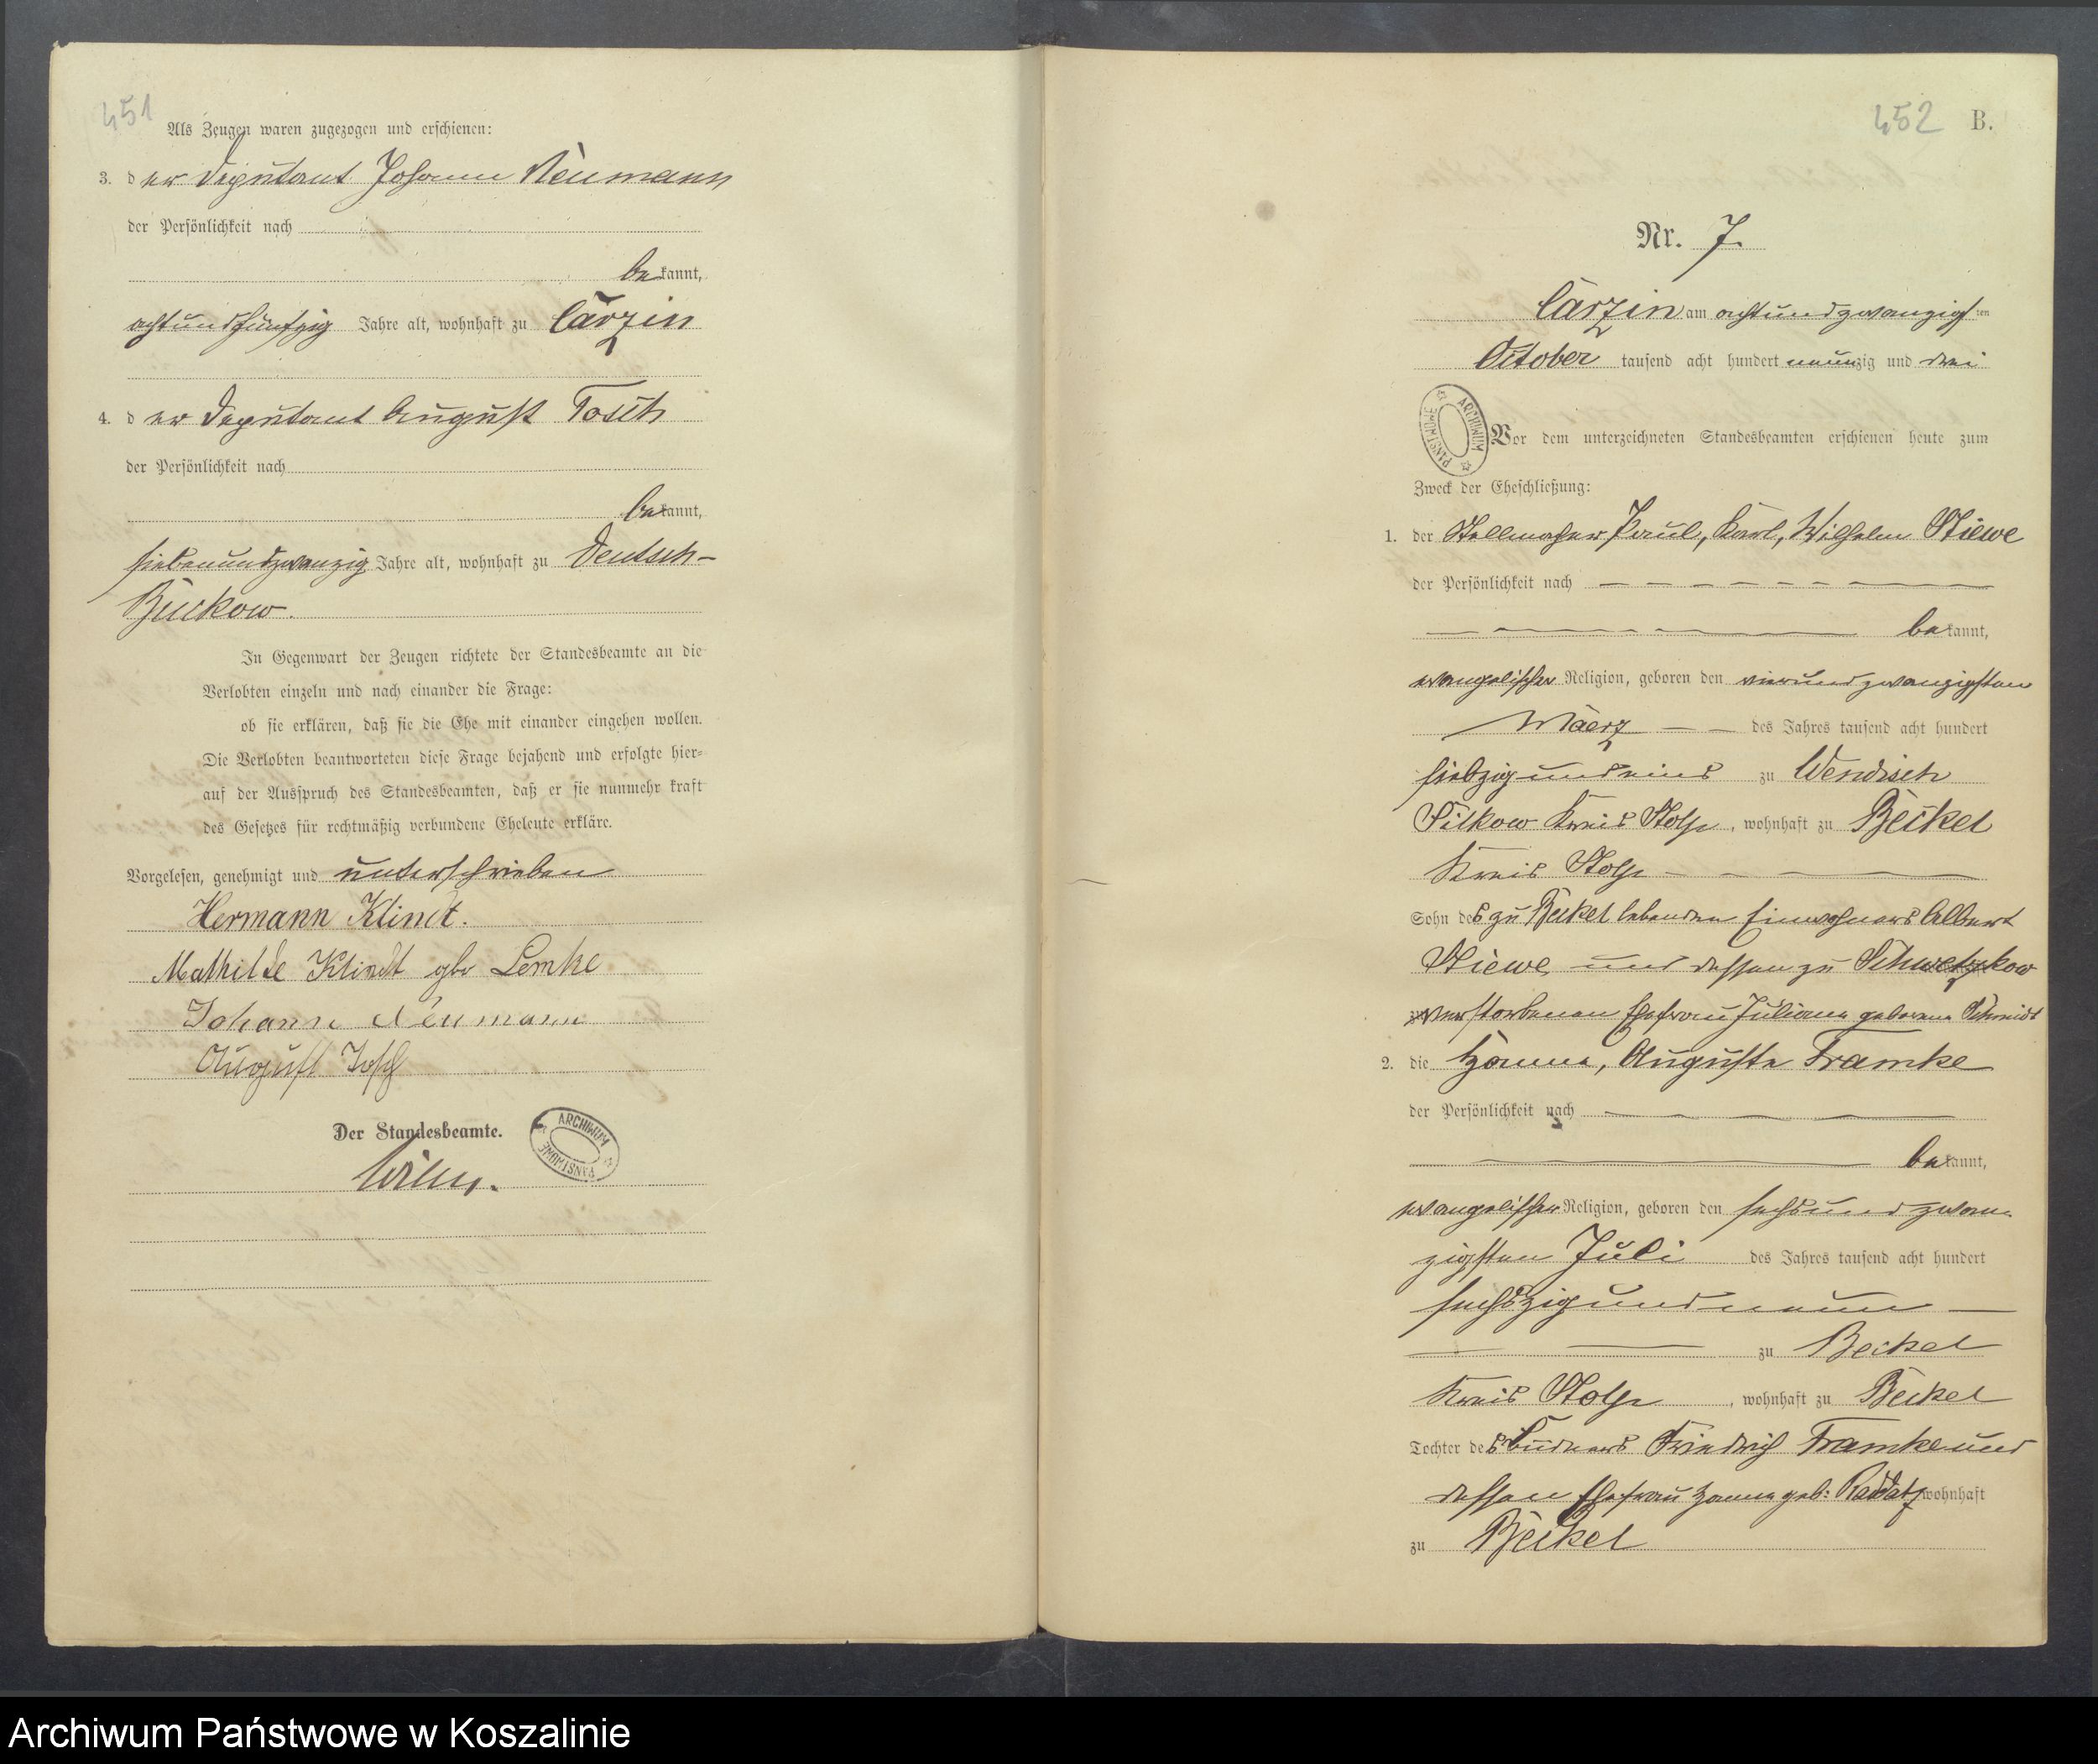 451
Als Zeugen waren zugezogen und erschienen:
3. der Deputant Johann Neumann
der Persönlichkeit nach
bekannt,
achtundfünfzig Jahre alt, wohnhaft zu Carzin
4. der Deputant August Tosch
der Persönlichkeit nach
bekannt,
siebenundzwanzig Jahre alt, wohnhaft zu Deutsch-
Buckow.
In Gegenwart der Zeugen richtete der Standesbeamte an die
Verlobten einzeln und nach einander die Frage:
ob sie erklären, daß sie die Ehe mit einander eingehen wollen.
Die Verlobten beantworteten diese Frage bejahend und erfolgte hier-
auf der Ausspruch des Standesbeamten, daß er sie nunmehr kraft
des Gesetzes für rechtmäßig verbundene Eheleute erkläre.
Vorgelesen, genehmigt und unterschrieben
Hermann Klindt.
Mathilde Klindt gbr Lemke
Johann Neumann
August Tosch
Der Standesbeamte.
ARCHIWUM PAŃSTWOWE
452 B.
Nr. 7.
Carzin am achtundzwanzigsten
October tausend acht hundert neunzig und drei
ARCHIWUM PAŃSTWOWE
Vor dem unterzeichneten Standesbeamten erschienen heute zum
Zweck der Eheschließung:
1. der Stellmacher Paul, Karl, Wilhelm Stiewe
der Persönlichkeit nach
bekannt,
evangelischer Religion, geboren den vierundzwanzigsten
Maerz des Jahres tausend acht hundert
siebzig und eins zu Wendisch
Silkow Kreis Stolp, wohnhaft zu Beckel
Kreis Stolp
Sohn des zu Beckel lebenden Einwohners Albert
Stiewe und dessen zu Schwetzkow
verstorbenen Ehefrau Juliane geborene Schmidt
2. die Hanne, Auguste Framke
der Persönlichkeit nach
bekannt,
evangelischer Religion, geboren den sechsundzwan-
zigsten Juli des Jahres tausend acht hundert
sechszig und neun
zu Beckel
Kreis Stolp, wohnhaft zu Beckel
Tochter des Büdners Friedrich Framke und
dessen Ehefrau Hanne geb: Raddatz wohnhaft
zu Beckel
Archiwum Państwowe w Koszalinie